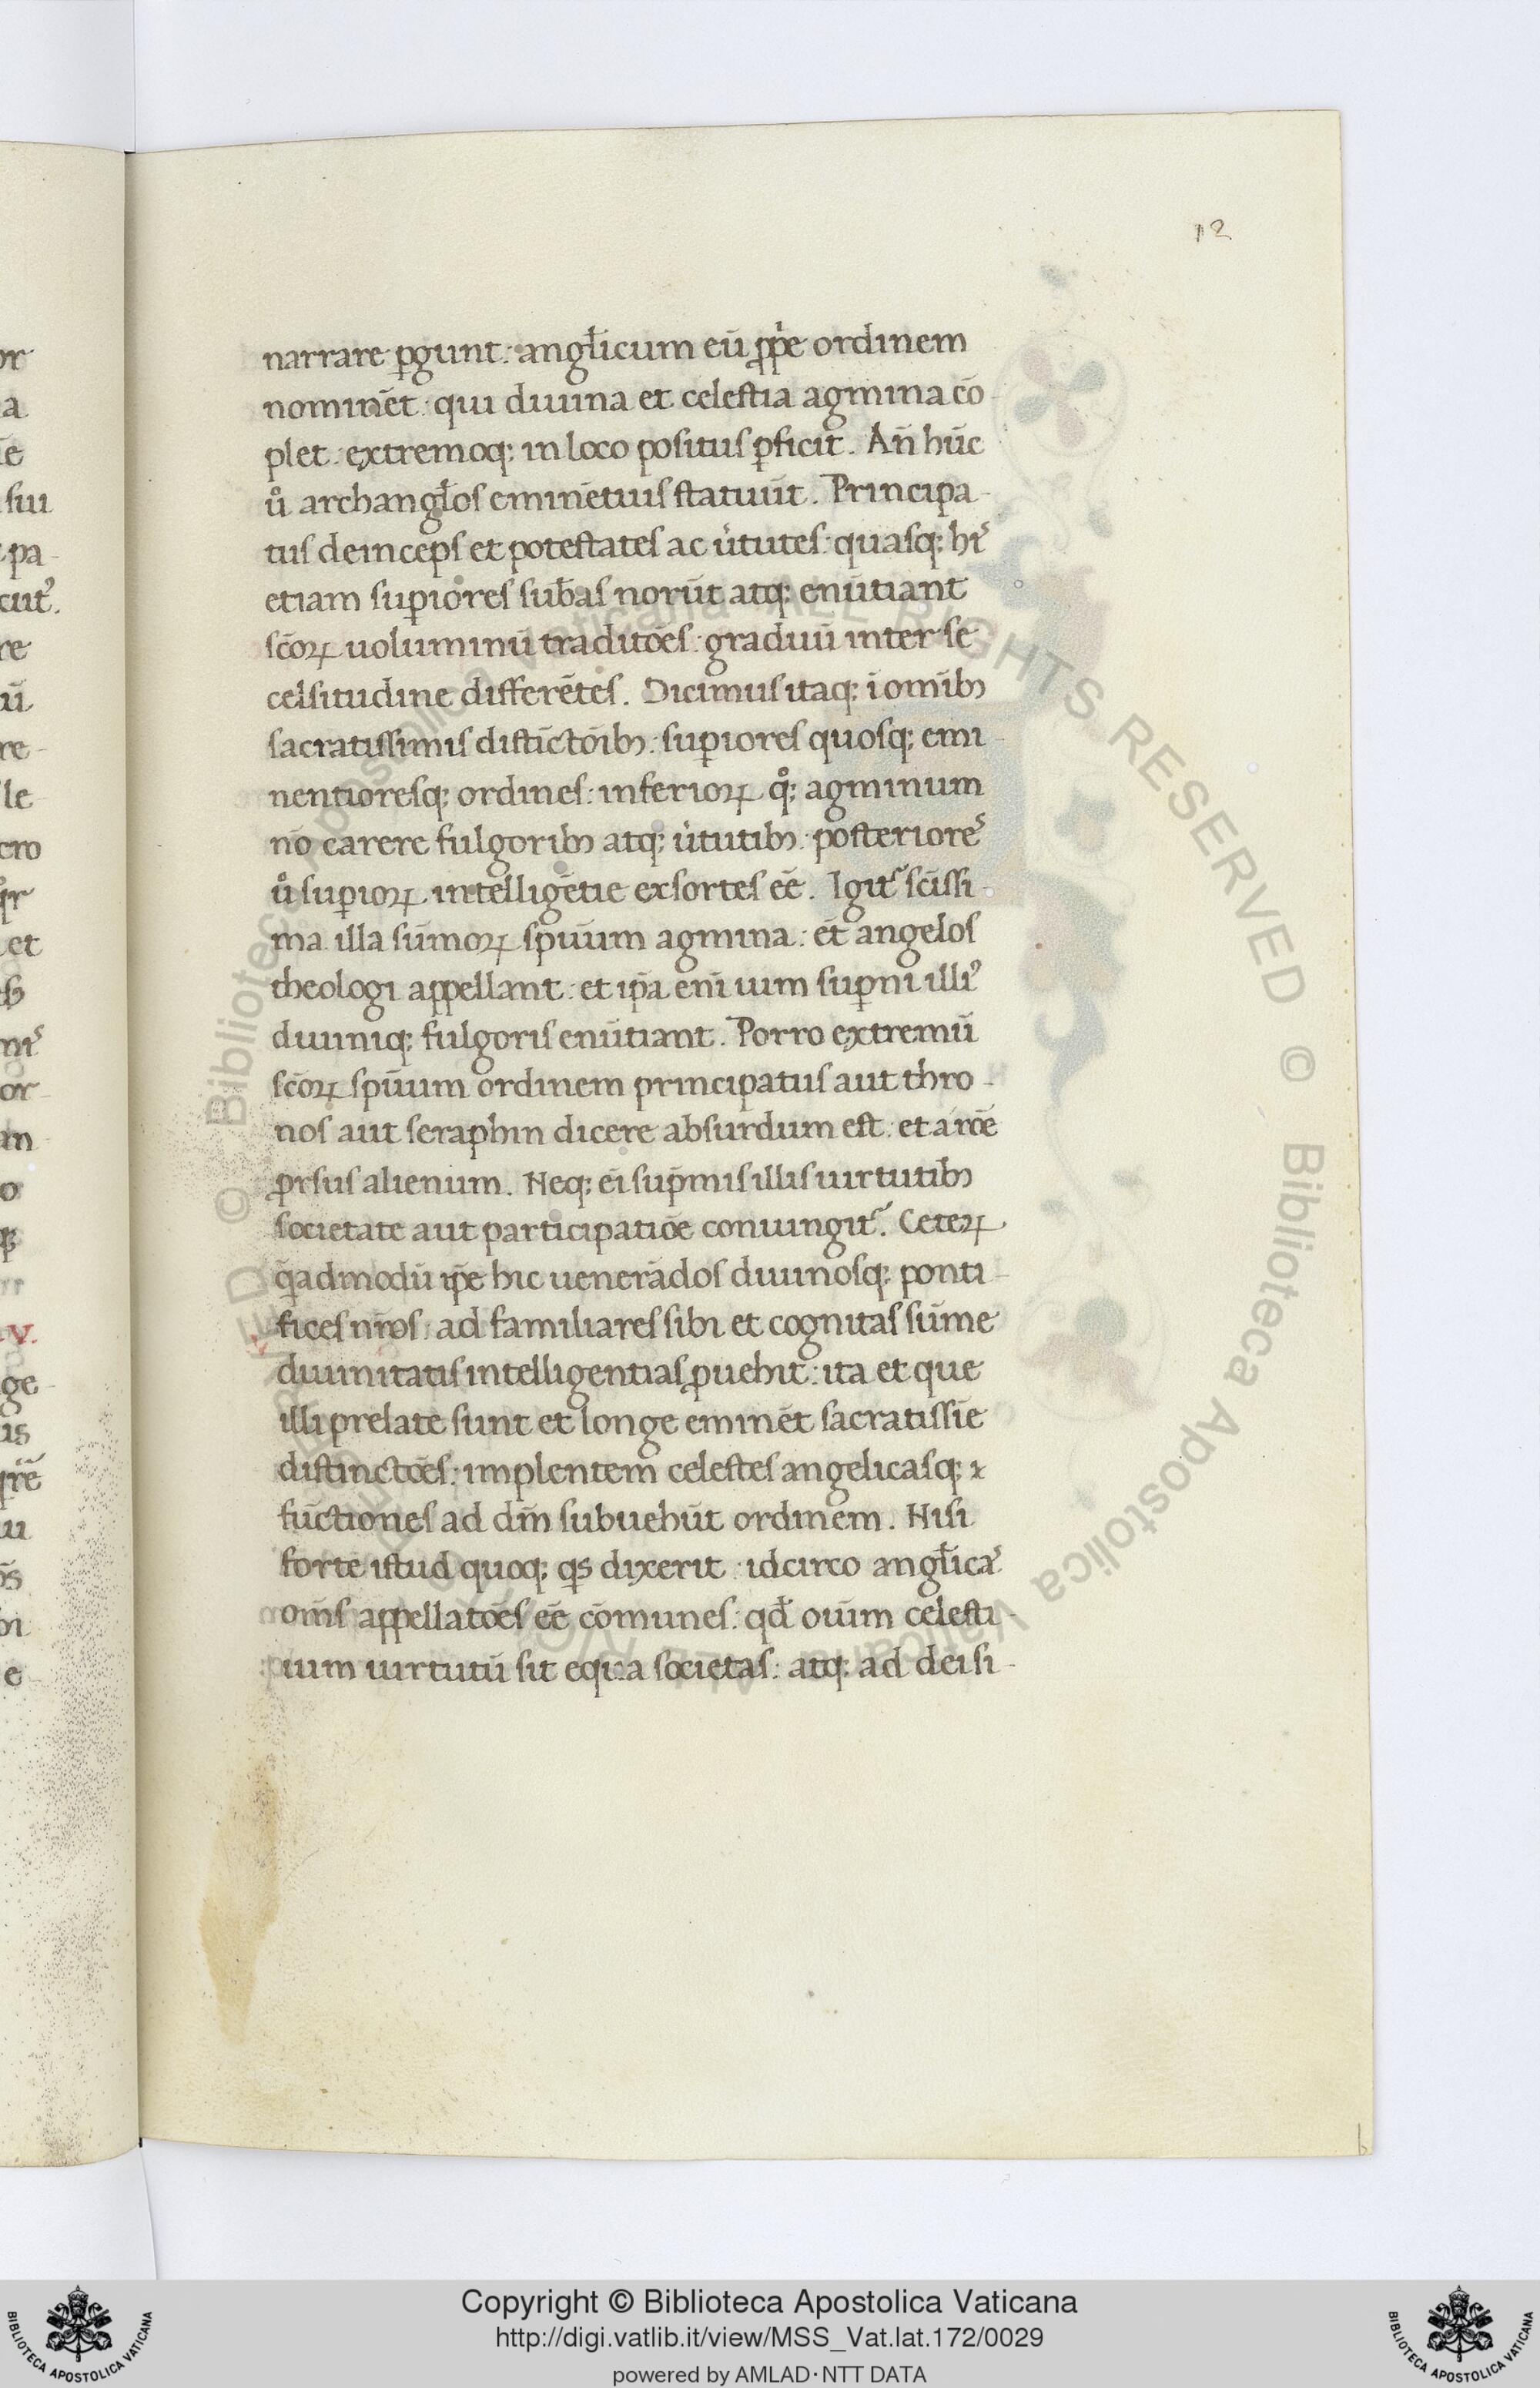 12
narrare ꝑgunt: angl̃icum eũ ꝓpͥe ordinem
nominẽt: qui diuina et celestia agmina cõ
plet: extremoqꝫ in loco positus ꝑficit. An̄ hũc
uͦ archangl̃os eminẽtius statuũt. Principa-
tus deinceps et potestates ac uͥtutes: quasqꝫ hiˀ
etiam suꝑiores sub̃as norũt atqꝫ enũtiant
sc̃oꝝ uoluminũ traditões: graduũ inter se
celsitudine differẽtes. Dicimus itaqꝫ ĩ omĩbꝫ
sacratissimis distĩctõibꝫ: suꝑiores quosqꝫ emi-
nentioresqꝫ ordines: inferioꝝ qͦꝫ agminum
nõ carere fulgoribꝫ atqꝫ uͥtutibꝫ: posterioreˀ
uͦ suꝑioꝝ intelligẽtie exsortes eẽ. Igitˀ sc̃issi-
ma illa sũmoꝝ spũum agmina: et̃ angelos
theologi appellant: et ip̃a enĩ uim suꝑni illiˀ
diuiniqꝫ fulgoris enũtiant. Porro extremũ
sc̃oꝝ spũum ordinem principatus aut thro-
nos aut seraphin dicere absurdum est: et a rõe
ꝓrsus alienum. Neqꝫ ei̇̃ sup̃mis illis uirtutibꝫ
societate aut participatiõe coniungitˀ. Ceteꝝ
q̃admodũ ip̃e hic uenerãdos diuinosqꝫ ponti-
fices nr̃os: ad familiares sibi et cognitas sũme
diuinitatis intelligentias ꝓuehit: ita et que
illi prelate sunt et longe eminẽt sacratissĩe
distinctões: implentem celestes angelicasqꝫ
fũctiones ad dm̃ subuehũt ordinem. Nisi
forte istud quoqꝫ qs dixerit: idcirco angl̃icaˀ
om̃s appellatões eẽ cõmunes: qd̃ oium celesti-
ium uirtutũ sit equa societas: atqꝫ ad dei si-
Copyright © Biblioteca Apostolica Vaticana
http://digi.vatlib.it/view/MSS_Vat.lat.172/0029
powered by AMLAD·NTT DATA